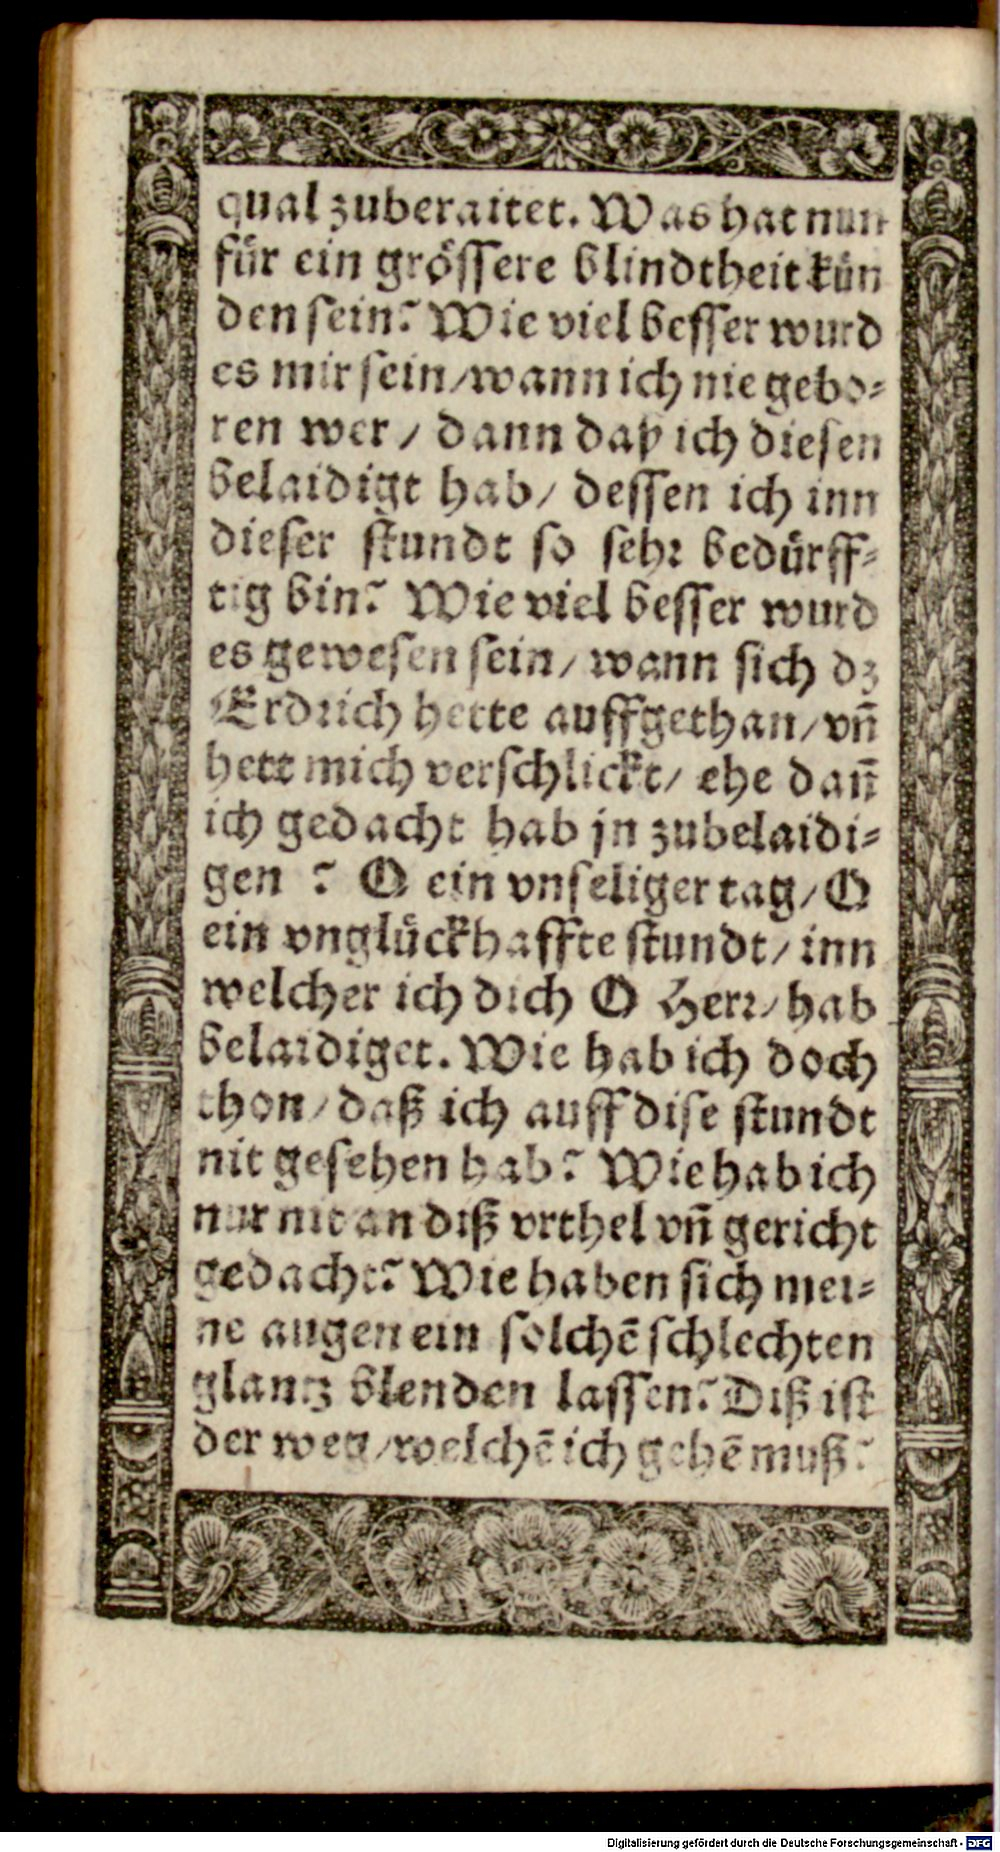 qual zuberaitet. Was hat nun
für ein grössere blindtheit kün
den sein? Wie viel besser wurd
es mir sein/wann ich nie gebo-
ren wer / dann daß ich diesen
belaidigt hab/ dessen ich inn
dieser stundt so sehr bedürff-
tig bin? Wie viel besser wurd
es gewesen sein/ wann sich dz
Erdrich hette auffgethan/ vn̄
hett mich verschlickt/ ehe dan̄
ich gedacht hab jn zubelaidi-
gen ? O ein vnseliger tag/ O
ein vnglückhaffte stundt/ inn
welcher ich dich O Herr/ hab
belaidiget. Wie hab ich doch
thon/ daß ich auff dise stundt
nit gesehen hab? Wie hab ich
nur nit an diß vrthel vn̄ gericht
gedacht? Wie haben sich mei-
ne augen ein solchē schlechten
glantz blenden lassen? Diß ist
der weg/welchē ich gehē muß?
Digitalisierung gefördert durch die Deutsche Forschungsgemeinschaft - DFG